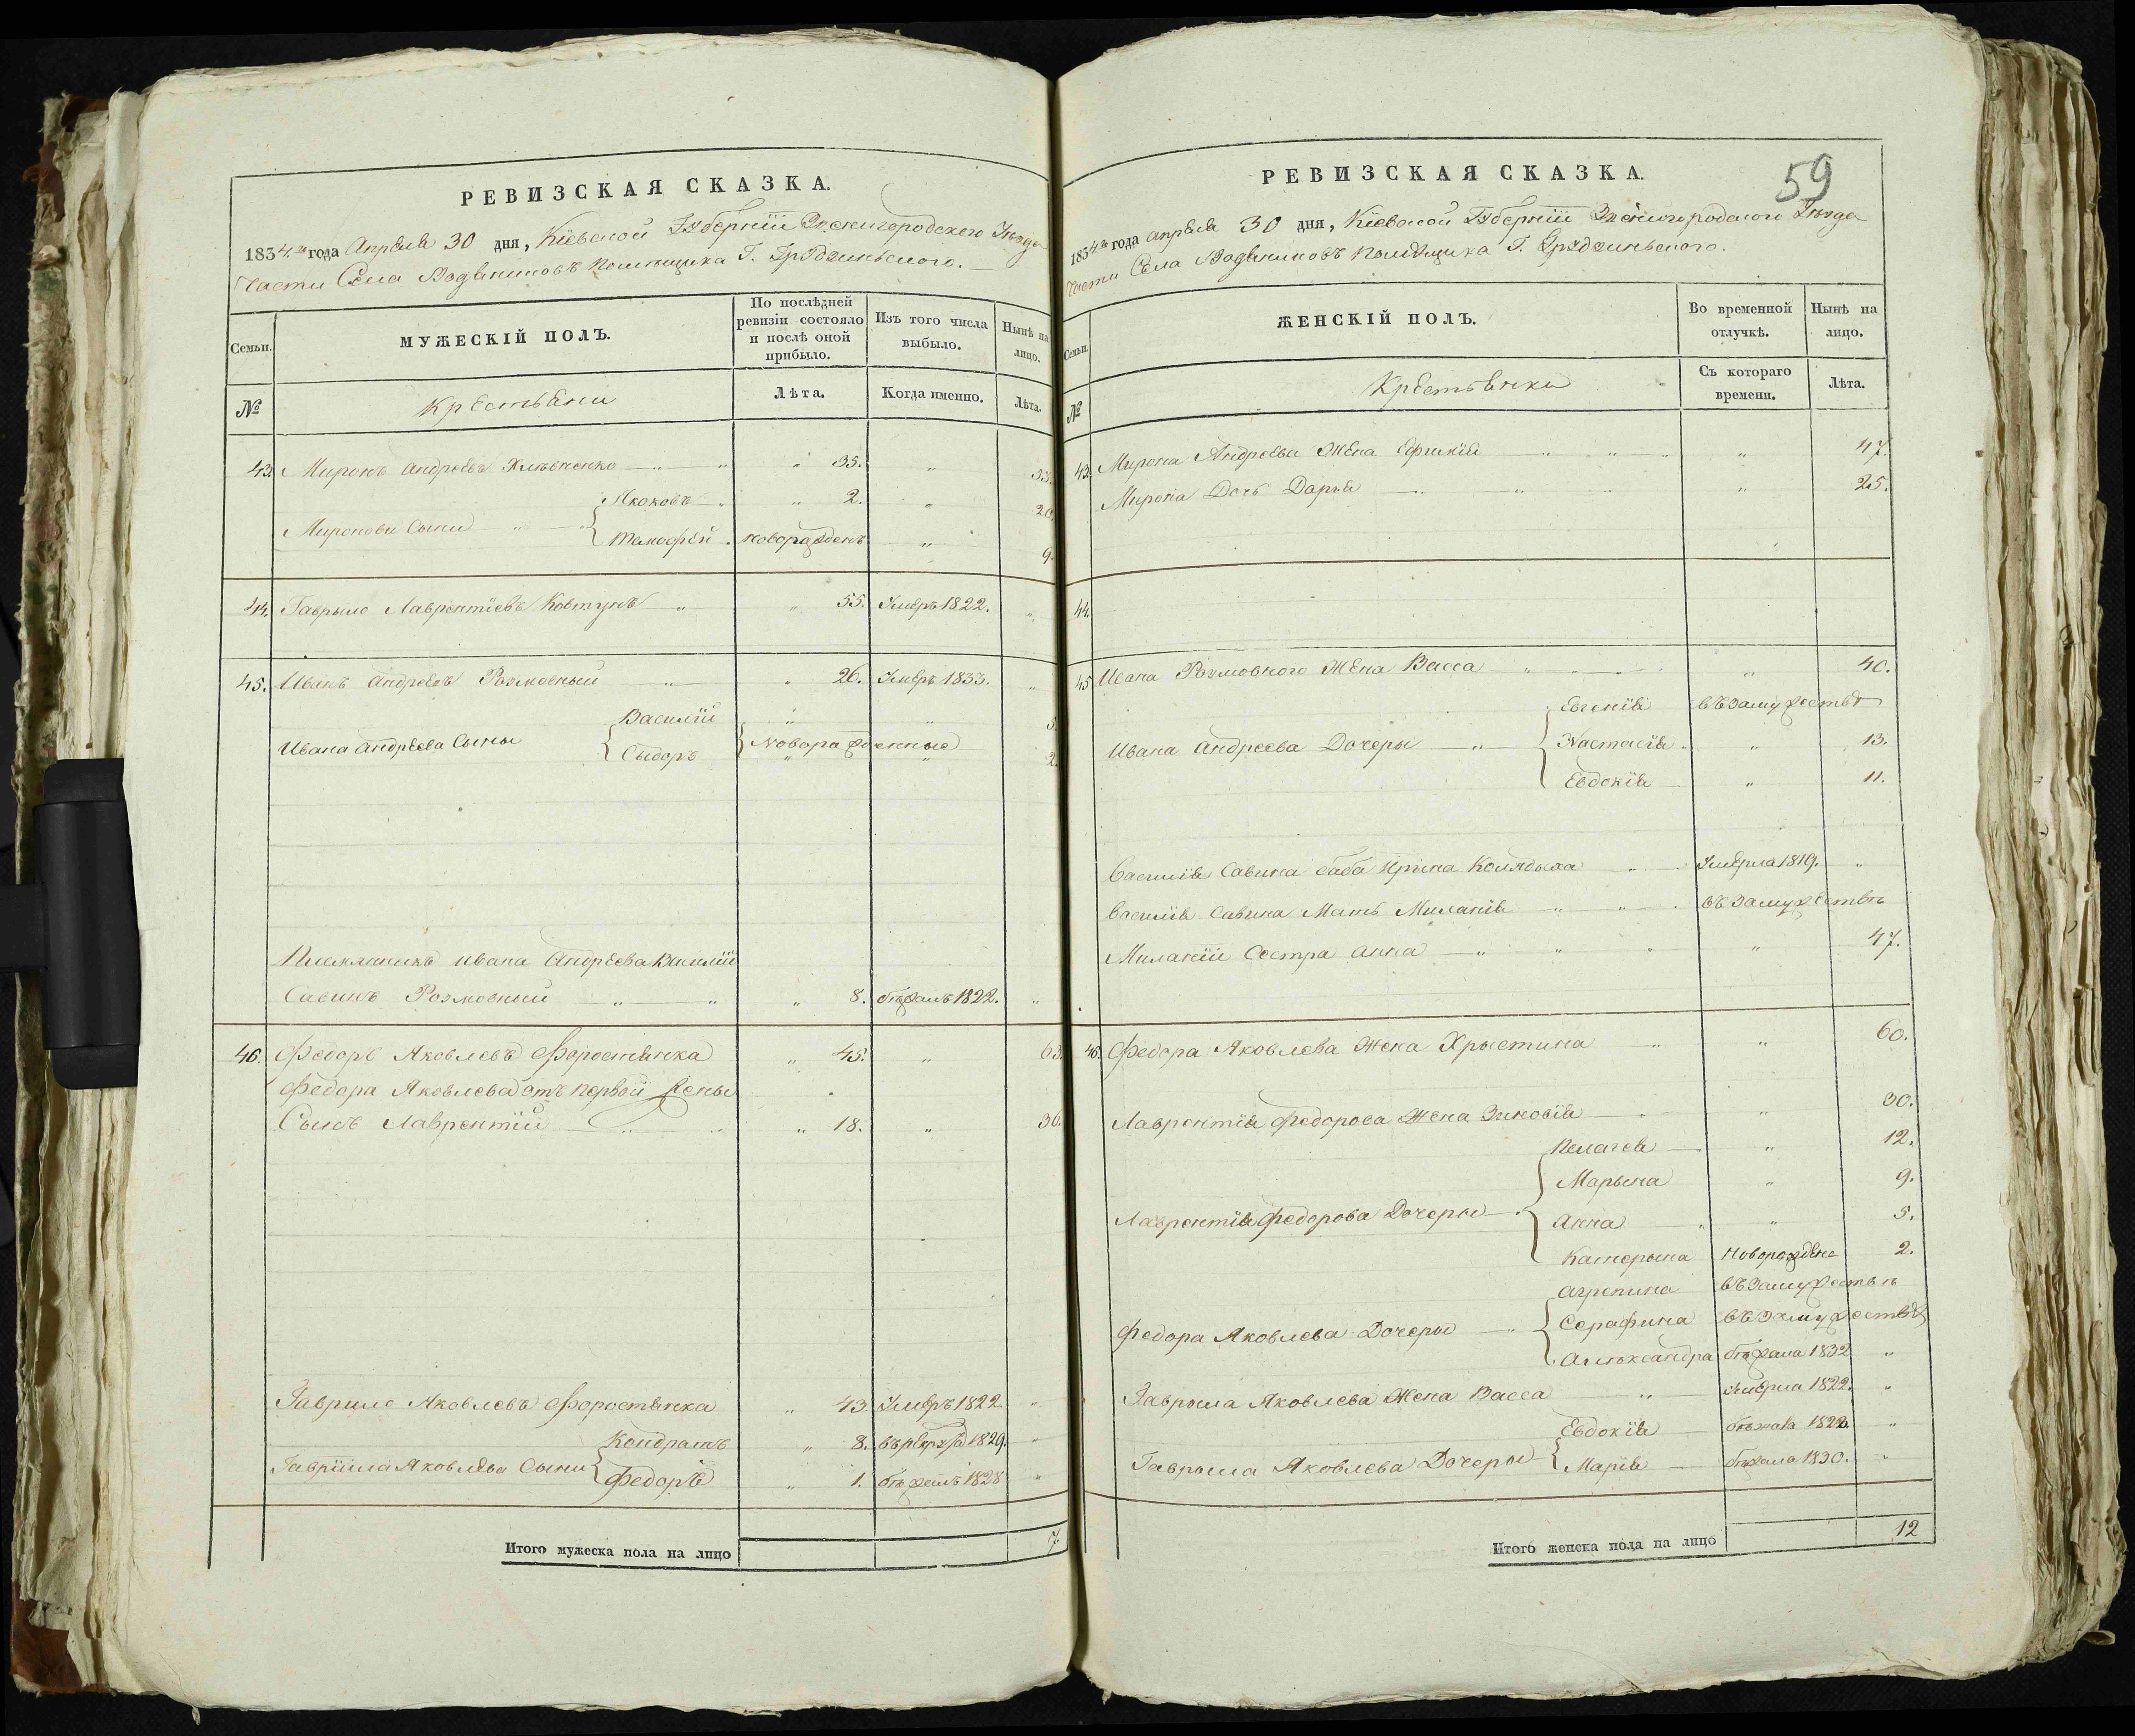 РЕВИЗСКАЯ СКАЗКА.
1834го года Апреля 30 дня, Кіевской Губерніи Звенигородского Уезда
Части Села Водяниковъ помѣщика Г. Грудзинского.
Семьи.
МУЖЕСКІЙ ПОЛЪ.
По послѣдней ревизіи состояло и послѣ оной прибыло.
Изъ того числа выбыло.
Нынѣ на лицо.
№
Крестьяни
Лѣта.
Когда именно.
Лѣта.
43. Миронъ Андреевъ 35. 53.
Мироновы Сыни
Якововъ 2. 20.
Темофей новорожденъ 9.
44. Гаврыло Лаврентіевъ Ковтунъ 55. Умеръ 1822.
45. Иванъ Андреевъ Розмовный 26. Умеръ 1833.
Ивана Андреева Сыны
Василій 5
Сыдоръ 2.
Новорожденные
Племянникъ Ивана Андреева Василій
Савинъ Розмовный 8. бѣжалъ 1822.
46. Федоръ Яковлевъ Форостянка 45. 63.
Федора Яковлева отъ первой жены
Сынъ Лаврентій 18. 36.
Гаврило Яковлевъ Форостянка 43. Умеръ 1822
Гавріила Яковлева Сыни
Кондратъ 8. 1829.
Федоръ 1. бѣжалъ 1828
Итого мужеска пола на лицо 7.
РЕВИЗСКАЯ СКАЗКА.
59
1834го года апреля 30 дня, Кіевской Губерніи Звенигородского Уезда
Части Села Водяниковъ помѣщика Г. Грудзинского.
Семьи.
ЖЕНСКІЙ ПОЛЪ.
Во временной отлучкѣ.
Нынѣ на лицо.
№
Крестьянки
Съ котораго времени.
Лѣта.
43. Мирона Андреева Жена Ефимія 47.
Мирона Дочь Дарья 25.
44.
45 Ивана Розмовного Жена Васса 40.
Ивана Андреева Дочеры
Евгенія въ замужествѣ
Настасія 13.
Евдокія 11.
Василія Савина баба Ирына Колядыха Умерла 1819.
Василія Савина Мать Миланія въ замужествѣ
Миланіи Сестра Анна 47.
46. Федора Яковлева Жена Хрыстина 60.
Лаврентія Федорова Жена Зиновія 30.
Лаврентія Федорова Дочеры
Пелагея 12.
Марына 9.
Анна 5.
Катерына Новорожденна 2.
Федора Яковлева Дочеры
Агрепина въ замужествѣ
Серафина въ замужествѣ
Алѣксандра бѣжала 1832
Гаврыла Яковлева Жена Васса Умерла 1822.
Гаврыла Яковлева Дочеры
Евдокія бѣжала
Марія бѣжала 1830.
Итого женска пола на лицо 12